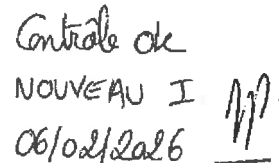 Contrôle de
NOUVEAU I
06/02/2026